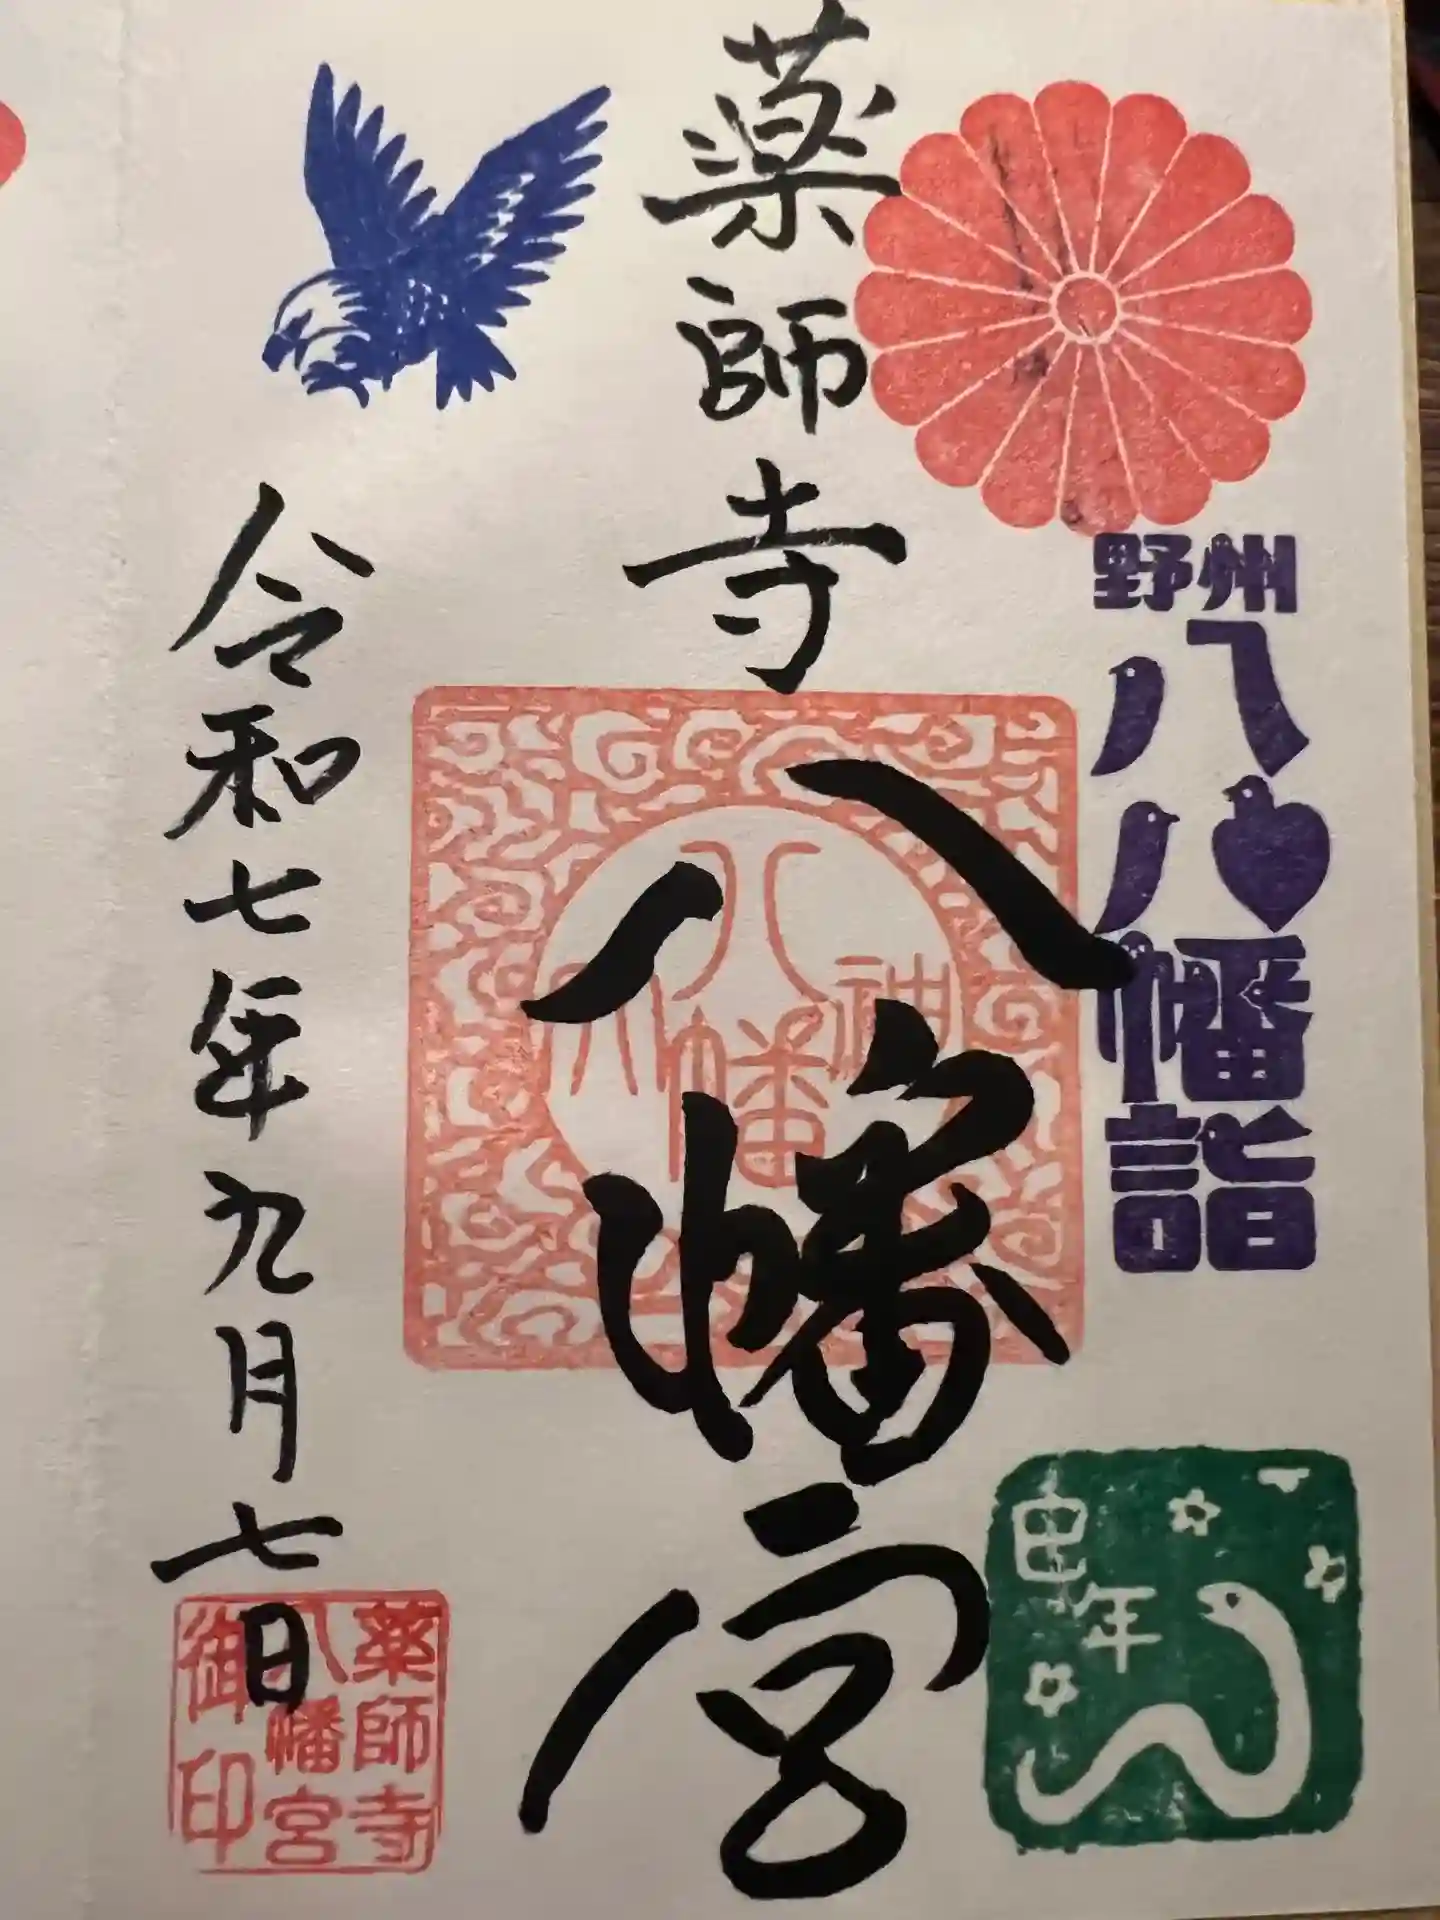 野州
八八幡詣
巳年
薬師寺
八幡宮
八幡大神
令和七年九月七日
薬師寺
八幡宮
御印